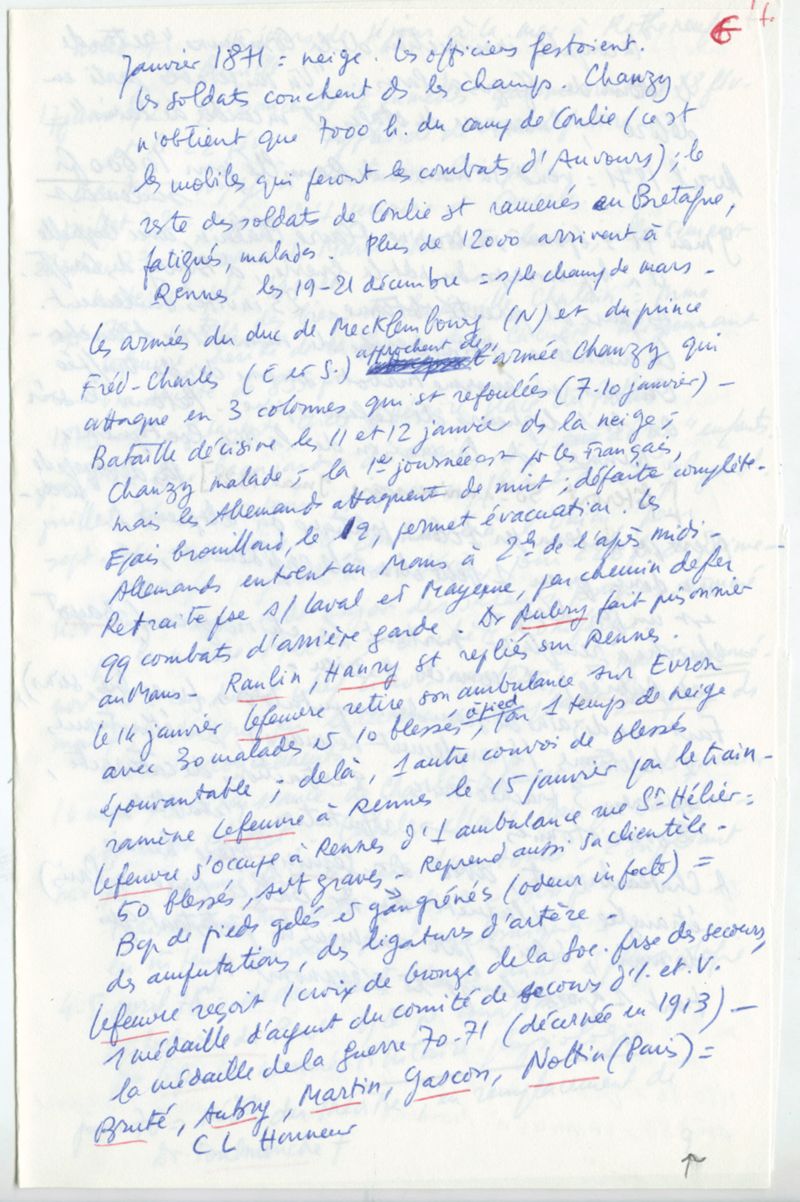 6
Janvier 1871 = neige. les officiers festoient.
les soldats couchent ds les champs. Chanzy
n'obtient que 7000 h. du camp de Conlie (ce st
les mobiles qui feront les combats d'Auvours) ; le
reste des soldats de Conlie st ramenés en Bretagne,
fatigués, malades. Plus de 12000 arrivent à
Rennes les 19-21 décembre = s/ le champ de mars -
Les armées du duc de Mecklembourg (N) et du prince
Fréd-Charles (E et S.) approchent de l'armée Chanzy qui
attaque en 3 colonnes qui st refoulées (7-10 janvier) -
Bataille décisive les 11 et 12 janvier ds la neige ;
Chanzy malade ; la 1e journée est pr les Français,
mais les Allemands attaquent de nuit ; défaite complète.
Epais brouillard, le 12, permet évacuation. les
Allemands entrent au Mans à 2h de l'après midi -
Retraite fse s/ Laval et Mayenne, par chemin de fer
99 combats d'arrière garde - Dr Aubry fait prisonnier
au Mans - Raulin, Hanry st repliés sur Rennes.
le 14 janvier Lefeuvre retire son ambulance sur Evron
avec 30 malades et 10 blessés, à pied, par 1 temps de neige
épouvantable ; de là, 1 autre convoi de blessés
ramène Lefeuvre à Rennes le 15 janvier par le train -
Lefeuvre s'occupe à Rennes d'1 ambulance rue St Hélier =
50 blessés, st graves - Reprend aussi sa clientèle -
Bcp de pieds gelés et gangrénés (odeur infecte) =
des amputations, des ligatures d'artère -
Lefeuvre reçoit 1 croix de bronze de la Soc. frse des secours,
1 médaille d'argent du comité de secours d'I. et V.
la médaille de la guerre 70-71 (décernée en 1913) -
Bruté, Aubry, Martin, Gascon, Nottin (Paris) =
C L Honneur